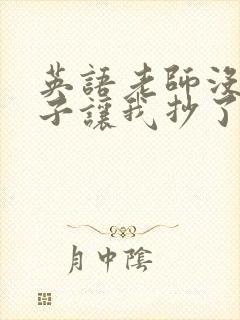 英語老師沒
子讓我抄了
月中陰